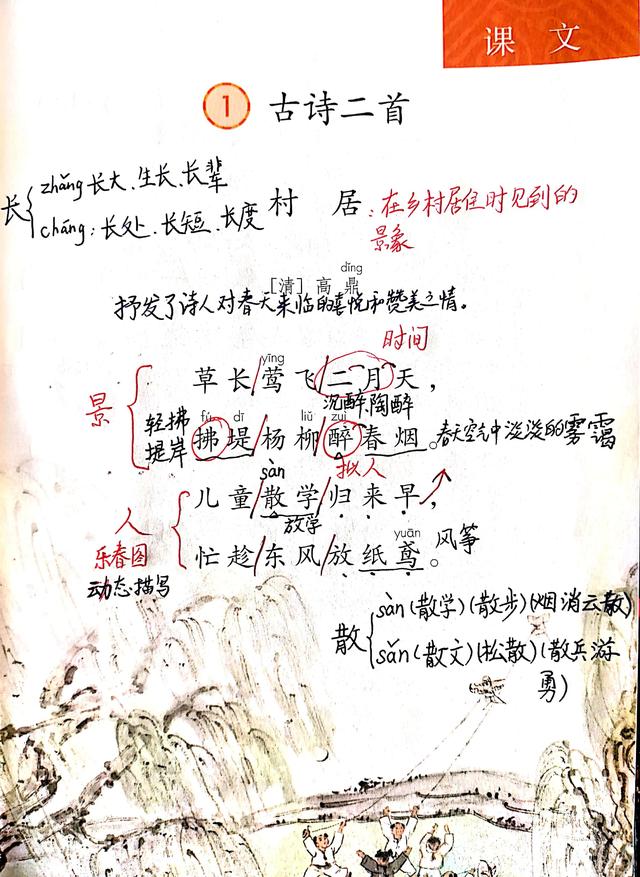 课 文
1 古诗二首
长
zhǎng 长大、生长、长辈
cháng：长处、长短、长度
村 居：在乡村居住时见到的
景象
dǐng
[清] 高 鼎
抒发了诗人对春天来临的喜悦和赞美之情。
时间
景
yīng
草 长/莺 飞/二 月 天，
沉醉、陶醉
轻拂
堤岸
fú dī liǔ zuì
拂 堤/杨 柳/醉 春 烟。
春天空气中淡淡的雾霭
拟人
sàn
人
儿 童/散 学/归 来 早，
放学
乐春图
动态描写
yuān
忙 趁/东 风/放 纸 鸢。
风筝
散
sàn(散学)(散步)(烟消云散)
sǎn(散文)(松散)(散兵游
勇)